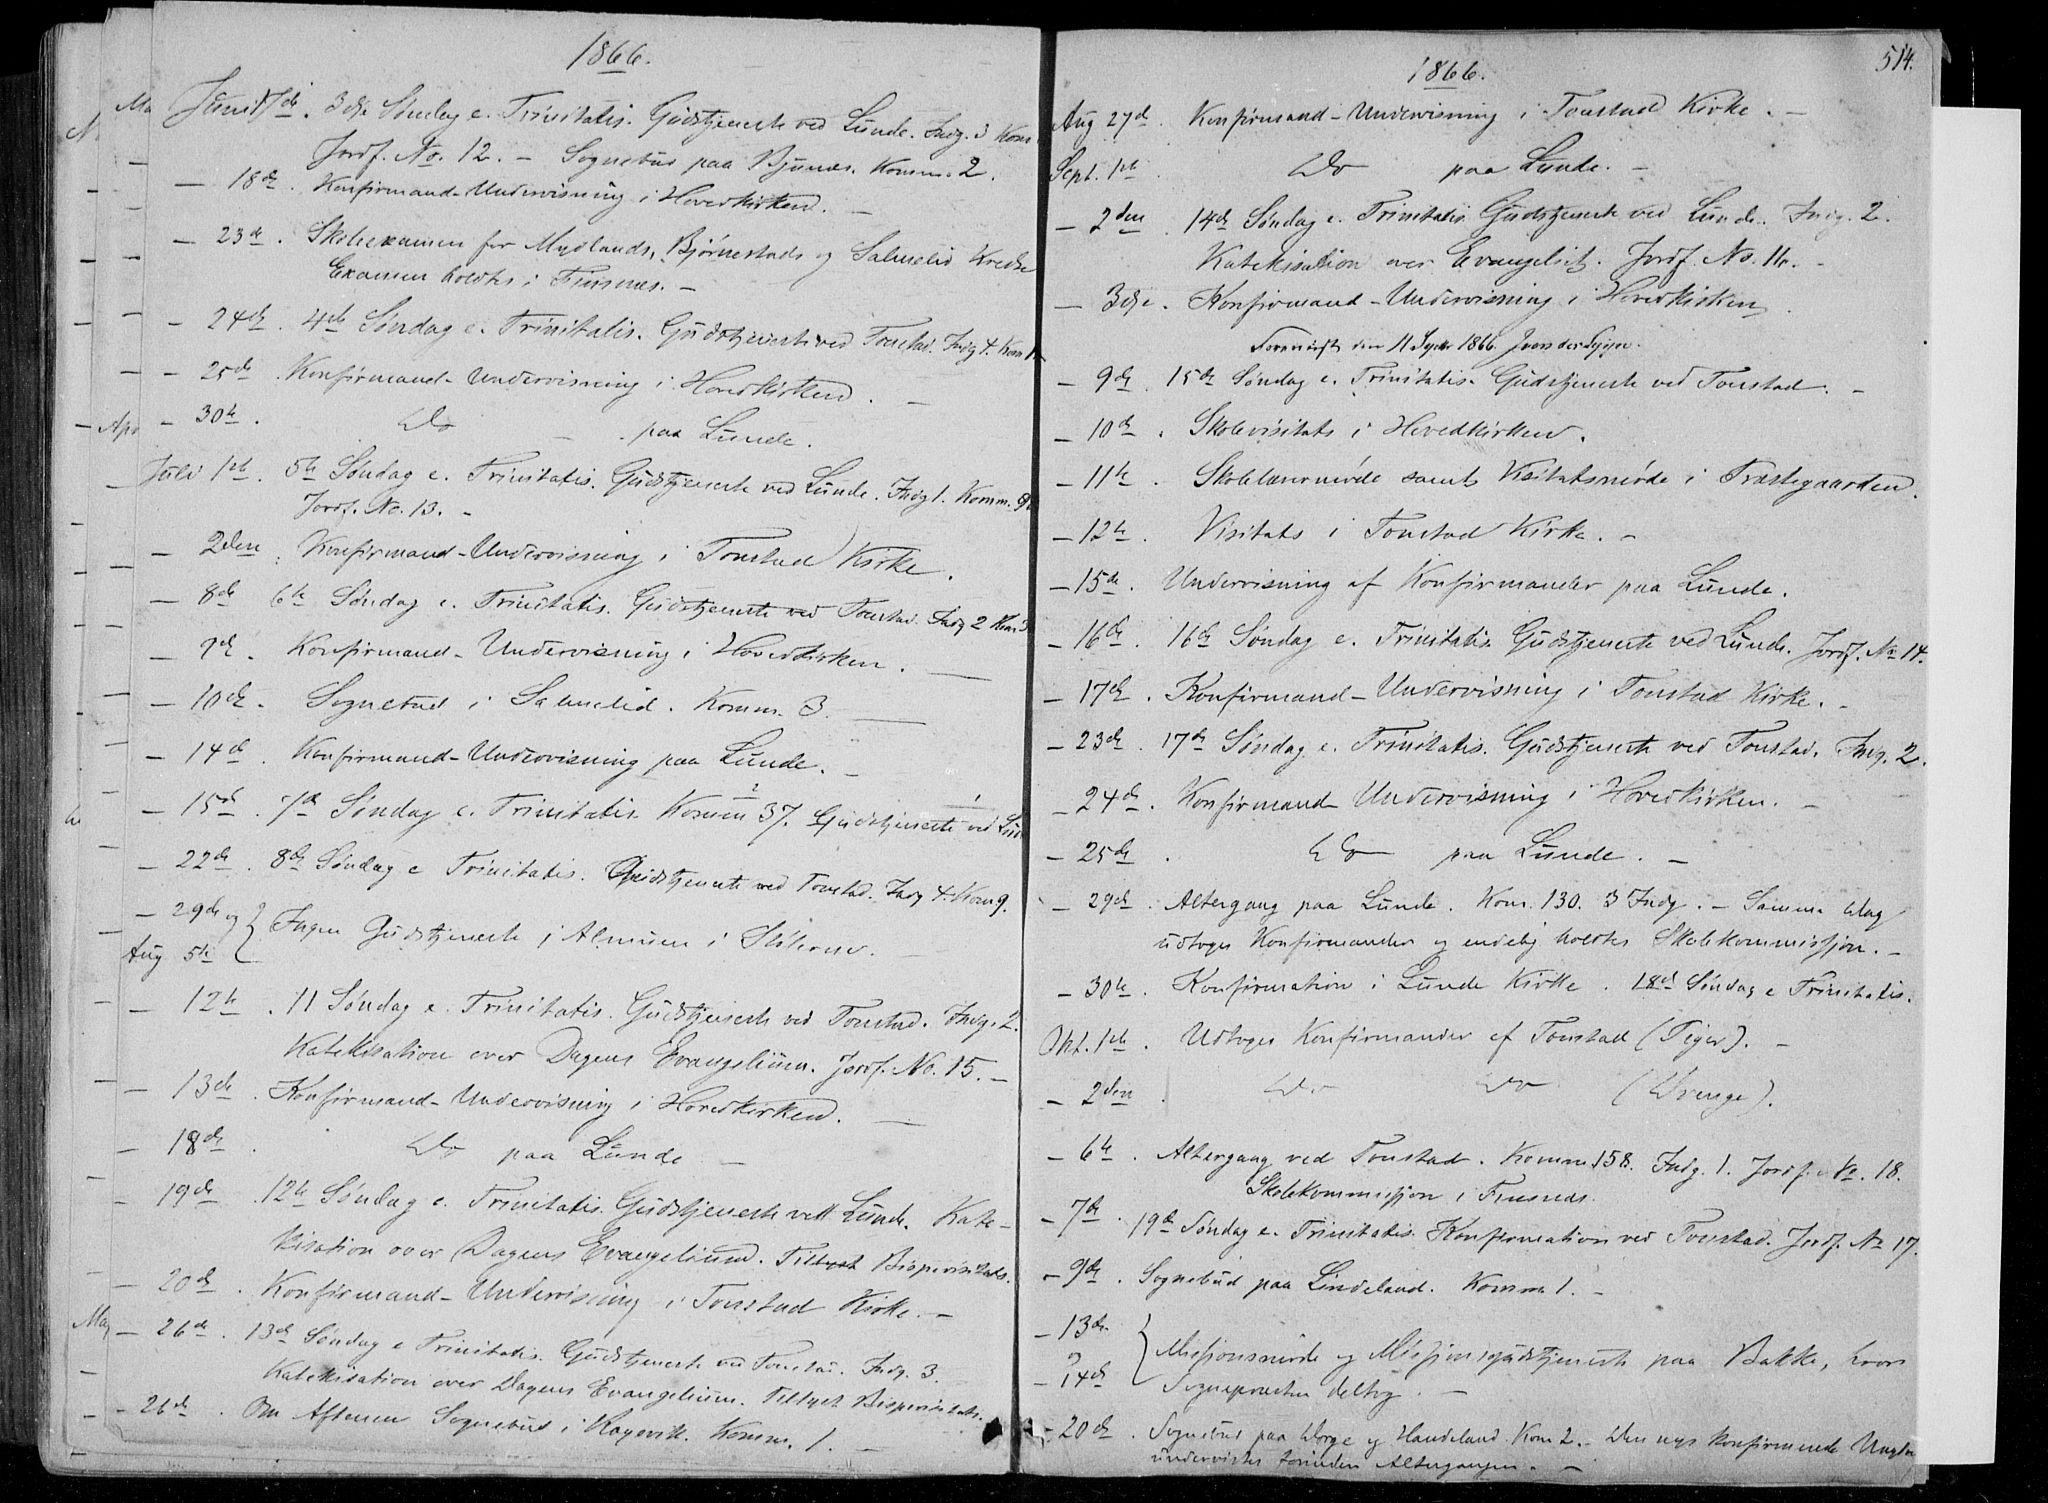 1866.
Juni 17de. 3die Søndag e. Trinitatis. Gudstjeneste ved Lunde. Indg. 3 Kom.
Jordf. No. 12. – Sognebud paa Bjunes. Komm. 2.
– 18de. Konfirmand-Underviisning i Hovedkirken. –
– 23de. Skoleexamen for Mydlands, Bjørnestads og Salmelid Kredse
Examen holdtes i Finsnes. –
– 24de. 4de Søndag e. Trinitatis. Gudstjeneste ved Tonstad. Indg 4. Kom 1
– 25de. Konfirmand-Underviisning i Hovedkirken. –
– 30te. Do – paa Lunde.
Juli 1ste. 5te Søndag e. Trinitatis. Gudstjeneste ved Lunde. Indg 1. Komm.
Jordf. No. 13. –
– 2den. Konfirmand-Underviisning i Tonstad Kirke.
– 8de 6te Søndag e. Trinitatis. Gudstjeneste ved Tonstad. Indg 2 Kom 3
– 9de. Konfirmand-Underviisning i Hovedkirken. –
– 10de. Sognebud i Salmelid. Komm. 3. –
– 14de. Konfirmand-Underviisning paa Lunde. –
– 15de. 7de Søndag e. Trinitatis. Komm 37. Gudstjeneste ved Lunde
– 22de. 8de Søndag e Trinitatis. Gudstjeneste ved Tonstad. Indg 4. Kom 9.
– 29de og
Aug 5te } Ingen Gudstjeneste, Almuen i Stølerne. –
– 12te. 11 Søndag e. Trinitatis. Gudstjeneste ved Tonstad. Indg. 2.
Katekisation over Dagens Evangelium. Jordf. No. 15. –
– 13de. Konfirmand-Underviisning i Hovedkirken. –
– 18de. Do paa Lunde –
– 19de. 12te Søndag e. Trinitatis. Gudstjeneste ved Lunde. Kate-
kisation over Dagens Evangelium. Tillyst Bispevisitats.
– 20de. Konfirmand-Underviisning i Tonstad Kirke. –
– 26de. 13de Søndag e Trinitatis. Gudstjeneste ved Tonstad. Indg. 3.
Katekisation over Dagens Evangelium. Tillyst Bispevisitats.
– 26de. Om Aftenen Sognebud i Røysvik. Komm. 1. –
1866.
514.
Aug 27de. Konfirmand-Underviisning i Tonstad Kirke. –
Sept. 1ste Do paa Lunde. –
– 2den. 14de Søndag e. Trinitatis. Gudstjeneste ved Lunde. Indg. 2.
Katekisation over Evangeliet. Jordf. No. 16. –
– 3die. Konfirmand-Underviisning i Hovedkirken.
Foreviist den 11 Septbr 1866.
– 9de 15de Søndag e. Trinitatis. Gudstjeneste ved Tonstad. –
– 10de. Skolevisitats i Hovedkirken.
– 11te. Skolelærermøde samt Visitatsmøde i Præstegaarden.
– 12te. Visitats i Tonstad Kirke. –
– 15de. Underviisning af Konfirmander paa Lunde.
– 16de. 16de Søndag e. Trinitatis. Gudstjeneste ved Lunde. Jordf. No 14.
– 17de. Konfirmand-Underviisning i Tonstad Kirke. –
– 23de. 17de Søndag e. Trinitatis. Gudstjeneste ved Tonstad. Indg. 2.
– 24de. Konfirmand-Underviisning i Hovedkirken. –
– 25de. Do paa Lunde. –
– 29de. Altergang paa Lunde. Kom. 130. 3 Indg. – Samme Dag
udtoges Konfirmander og endelig holdtes Skolekommission. –
– 30te. Konfirmation i Lunde Kirke. 18de Søndag e Trinitatis.
Okt. 1ste. Udtoges Konfirmander af Tonstad (Piger). –
– 2den. Do Do (Drenge).
– 6te. Altergang ved Tonstad. Komm. 158. Indg. 1. Jordf. No. 18.
Skolekommission i Finsnes.
– 7de. 19de Søndag e. Trinitatis. Konfirmation ved Tonstad. Jordf. No 17.
– 9de. Sognebud paa Lindeland. Komm 1. –
– 13de
og
– 14de } Missionsmøde og Missionsgudstjeneste paa Bakke, hvori
Sognepresten deltog. –
– 20de. Sognebud paa Dorge og Handeland. Kom 2. – Den nys konfirmerede Ungdom
undervistes forinden Altergangen. –